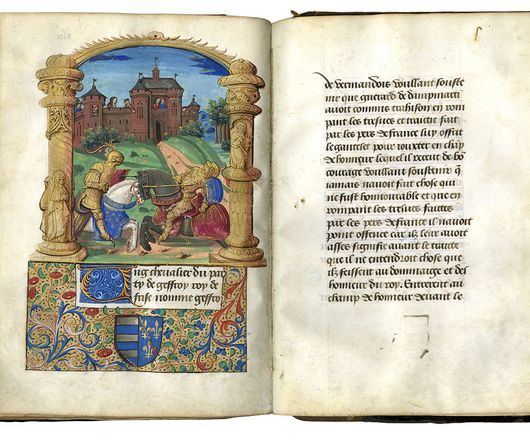 Ung chevalier du par
ty de geffroy roy de
frise nomme geffroy
de vermandois voullant souste
nir que guerard de dampmarti
avoit commis trahison en rom
pant les tresves et traictie fait
par les pers de france luy offrit
le gantelet pour jouxter en chap
de honneur lequel il receut de bo
courage voullant soustenir q
jamais navoit fait chose qui
ne fust honnourable et que en
rompant les tresves faictes
par les pers de france il navoit
point offence car il leur avoit
asses signifie avant le traicte
que il ne entendroit chose que
ilz feissent au dommaige et des
honneur du roy. Entrerent au
champ de honneur devant le